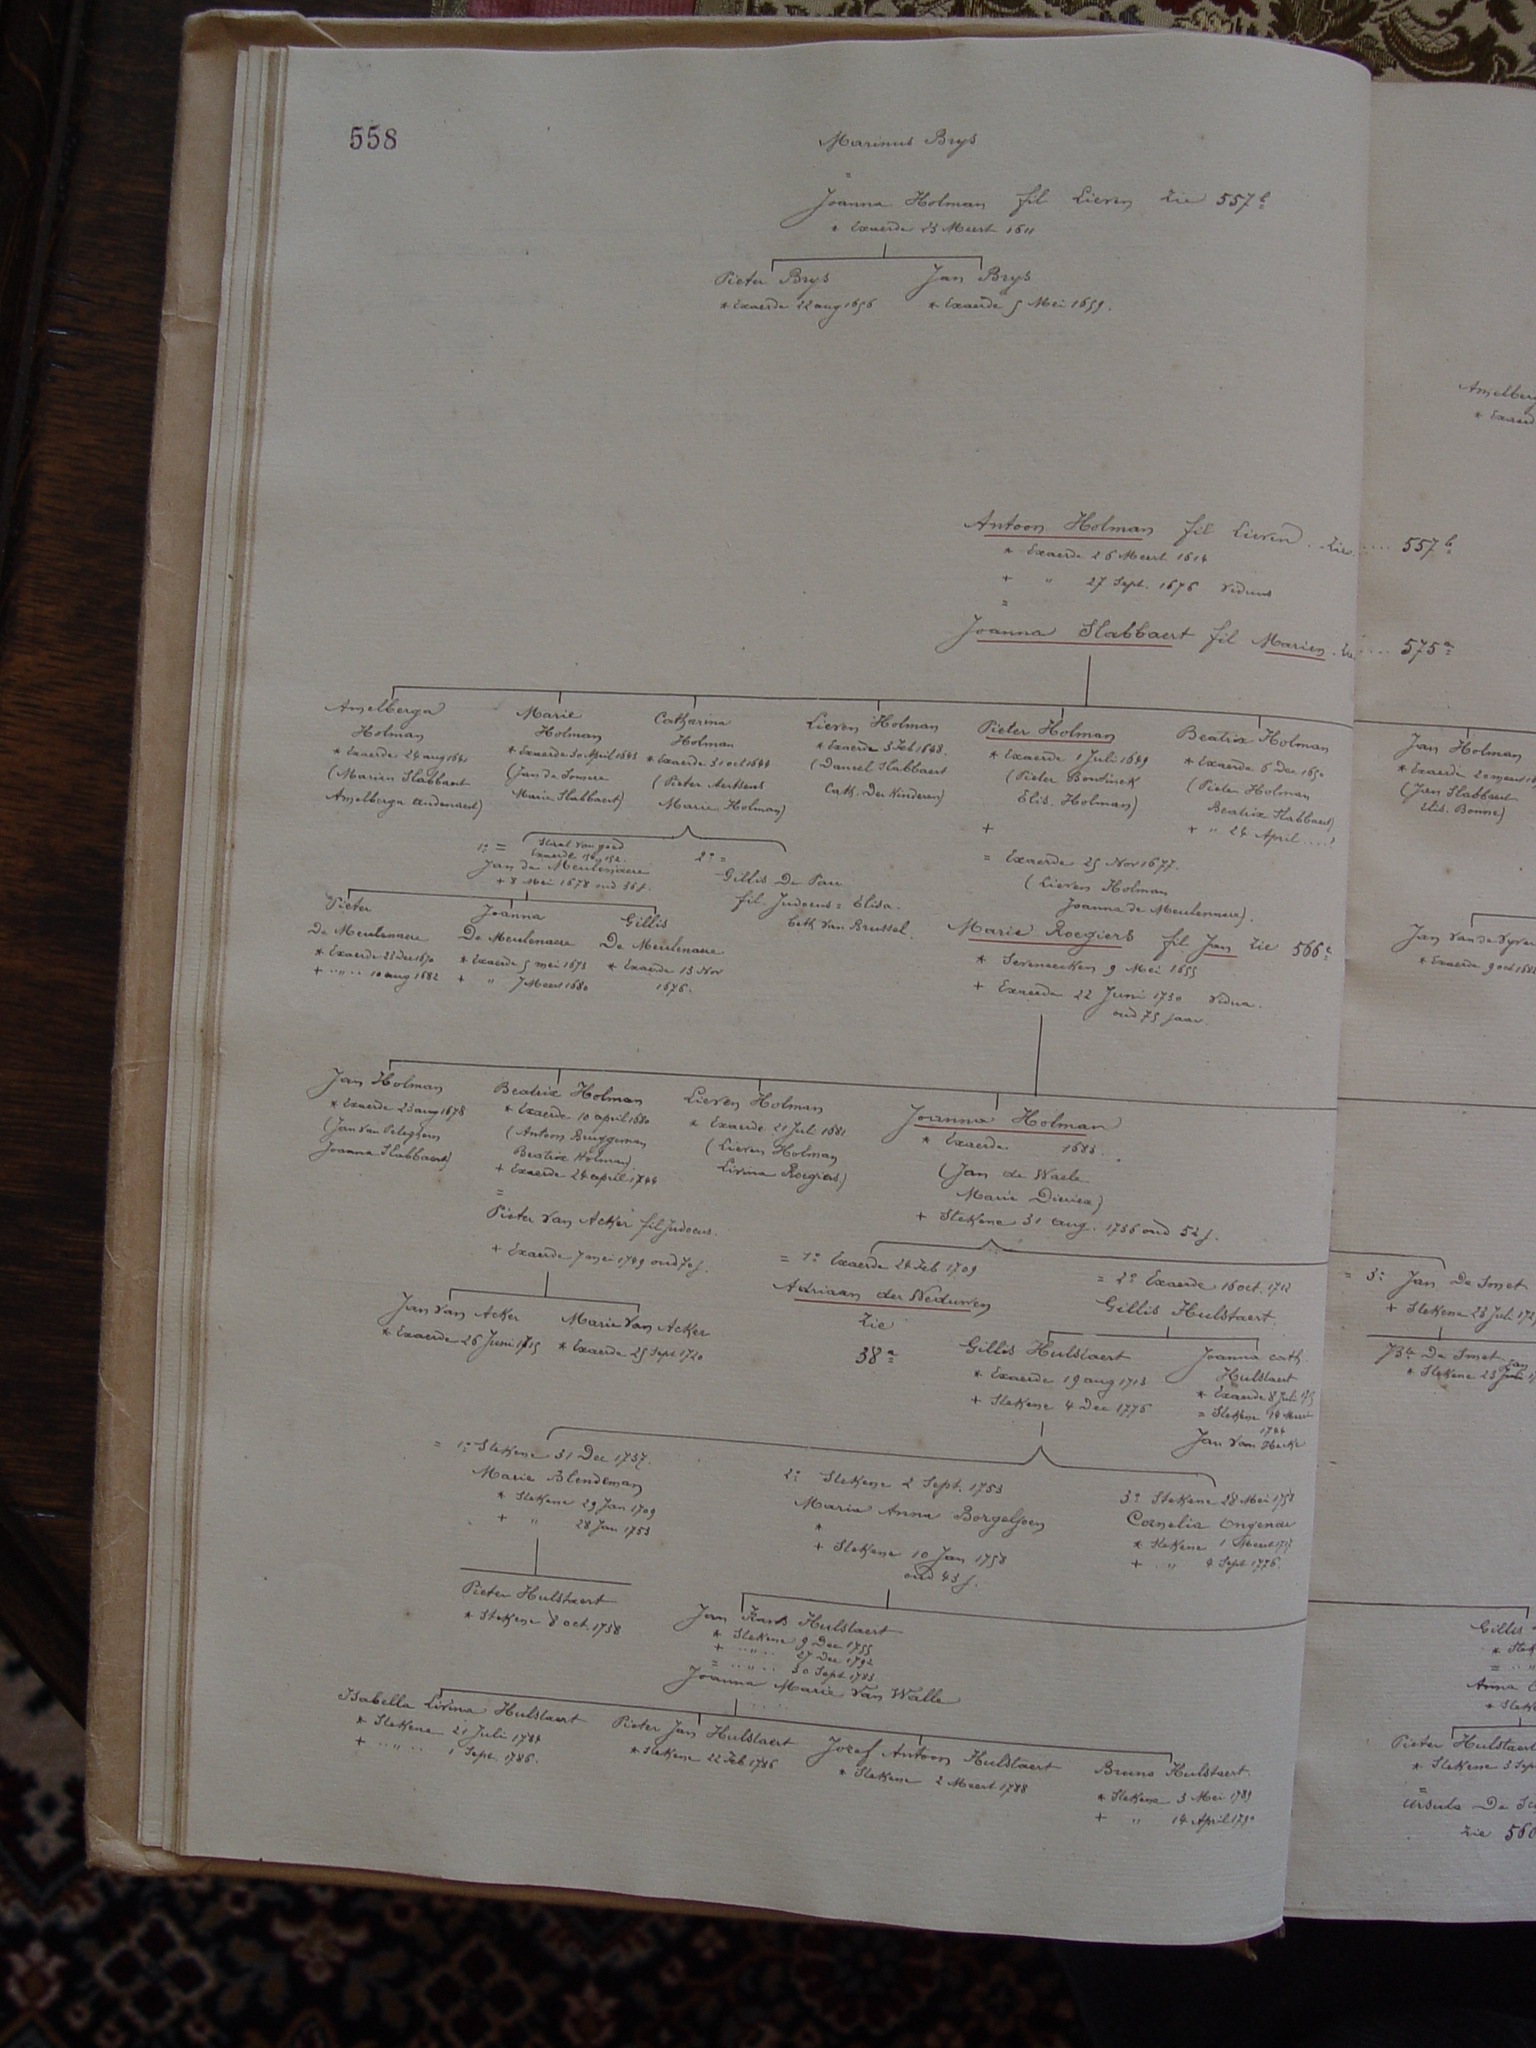 558
Marinus Brys
=
Joanna Holman fil Lieven zie 557 b
* Exaerde 23 Meert 1611
Pieter Brys
* Exaerde 22 aug 1656
Jan Brys
* Exaerde 5 Mei 1659.
Antoon Holman fil Lieven. zie .... 557 b
* Exaerde 26 Meert 1614
+ " 27 Sept. 1676 viduus
=
Joanna Slabbaert fil Marien. zie .... 575 a
Amelberga
Holman
* Exaerde 24 aug 1641
(Marien Slabbaert
Amelberga Audenaert)
Marie
Holman
* Exaerde 30 April 1643
(Jan de Somere
Marie Slabbaert)
Catharina
Holman
* Exaerde 31 oct 1644
(Pieter Aertsens
Marie Holman)
Lieven Holman
* Exaerde 3 Feb 1648.
(Daneel Slabbaert
Cath. Der Kinderen)
Pieter Holman
* Exaerde 1 Juli 1649
(Pieter Bontinck
Elis. Holman)
+
= Exaerde 25 Nov 1677.
(Lieven Holman
Joanna de Meulenaere).
Marie Roegiers fil Jan zie 566 c
* Sereneecken 9 Mei 1655
+ Exaerde 22 Juni 1730 vidua.
oud 75 jaar
Beatrix Holman
* Exaerde 6 Dec 1650
(Pieter Holman
Beatrix Slabbaert)
+ " 24 April ....?
Jan Holman
(Jan Slabbaert
Elis. Bonne)
1° =
Staat van goed
Exaerde
Jan de Meulenaere
+ 8 Mei 1678 oud 36 j.
2° =
Gillis De Pau
fil. Judocus = Elisa-
beth van Brussel.
Pieter
De Meulenaere
* Exaerde 23 Dec 1670
+ " 10 aug 1682
Joanna
De Meulenaere
* Exaerde 5 mei 1673
+ " 7 Meert 1680
Gillis
De Meulenaere
* Exaerde 13 Nov
1676.
Jan Holman
* Exaerde 23 aug 1678
(Jan van Peteghem
Joanna Slabbaert)
Beatrix Holman
* Exaerde 10 april 1680
(Antoon Bruggeman
Beatrix Holman)
+ Exaerde 24 april 1744
=
Pieter van Acker fil Judocus.
+ Exaerde 7 mei 1749 oud 70 j.
Lieven Holman
* Exaerde 21 Juli 1681
(Lieven Holman
Livina Roegiers)
Joanna Holman
* Exaerde 1683.
(Jan de Waele
Marie Diericx)
+ Stekene 31 aug. 1736 oud 52 j.
Jan van Acker
* Exaerde 26 Juni 1715
Marie van Acker
* Exaerde 25 Sept 1720
= 1° Exaerde 24 Feb 1709
Adriaan der Weduwen
zie
38 a
= 2° Exaerde 16 oct. 1712
Gillis Hulstaert.
= 3° Jan De Smet
+ Stekene 23 Juli
Gillis Hulstaert
* Exaerde 19 aug 1713
+ Stekene 4 Dec 1776
Joanna Cath.
Hulstaert
* Exaerde 8 Juli
= Stekene 14 Meert
1744
Jan van Hecke
De Smet
* Stekene 23 Juli
= 1° Stekene 31 Dec 1737.
Marie Blendeman
* Stekene 29 Jan 1709
+ " 28 Jan 1753
2° Stekene 2 Sept. 1753
Maria Anna Borgelioen
*
+ Stekene 10 Jan 1758
oud 43 j.
3° Stekene 28 Mei 1758
Cornelia Ongenae
* Stekene 1 Meert
+ " 4 Sept 1776.
Pieter Hulstaert
* Stekene 8 oct. 1738
Jan Frans Hulstaert
* Stekene 9 Dec 1755
+ " 27 Dec 1792
= " 30 Sept 1783
Joanna Marie Van Walle
Isabella Livina Hulstaert
* Stekene 21 Juli 1784
+ " 1 Sept. 1786.
Pieter Jan Hulstaert
* Stekene 22 Feb 1786
Jozef Antoon Hulstaert
* Stekene 2 Meert 1788
Bruno Hulstaert.
* Stekene 3 Mei 1789
+ " 14 April 1790
Jan Van de Vyver
* Exaerde 9 oct
Gillis
Pieter Hulstaert
* Stekene 3 Sep
=
Ursula De
zie 560